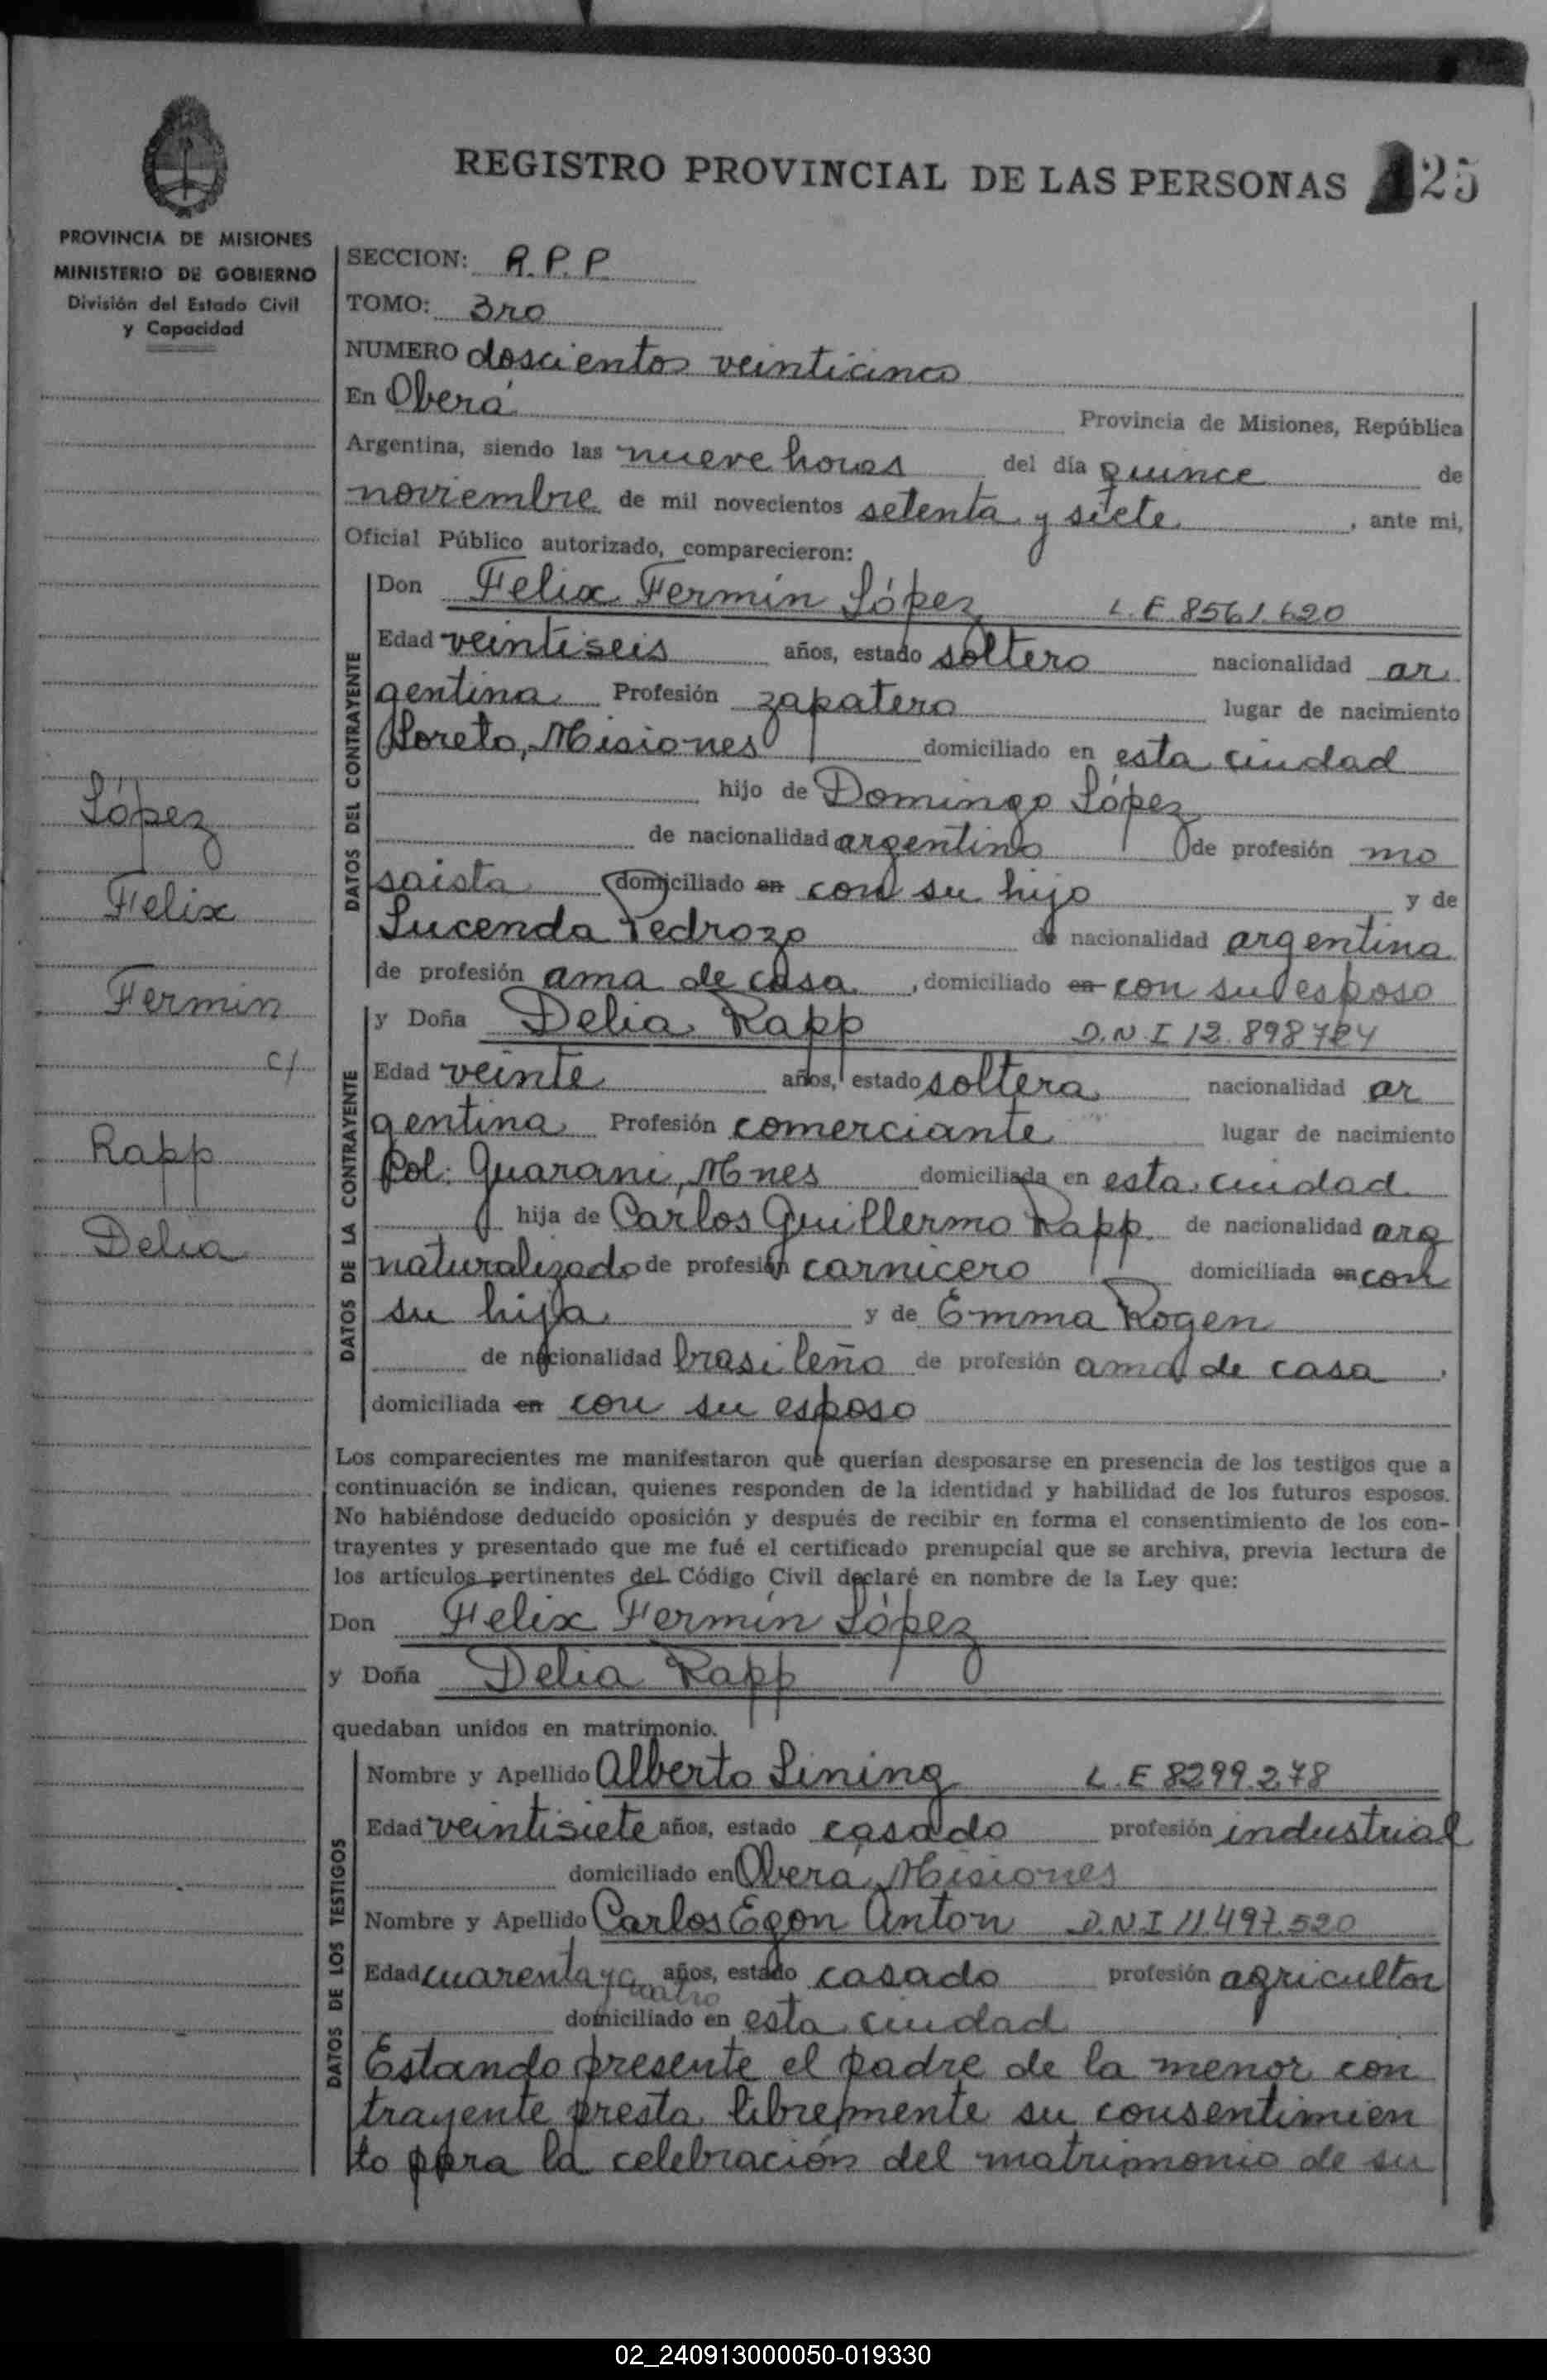 REGISTRO PROVINCIAL DE LAS PERSONAS 25
PROVINCIA DE MISIONES
MINISTERIO DE GOBIERNO
División del Estado Civil
y Capacidad
López
Felix
Fermin
c/
Rapp
Delia
SECCION: R.P.P
TOMO: 3ro
NUMERO doscientos veinticinco
En Oberá Provincia de Misiones, República
Argentina, siendo las nueve horas del día quince de
noviembre de mil novecientos setenta y siete, ante mi,
Oficial Público autorizado, comparecieron:
DATOS DEL CONTRAYENTE
Don Felix Fermín López L.E. 8561.620
Edad veintiseis años, estado soltero nacionalidad ar
gentina Profesión zapatero lugar de nacimiento
Loreto, Misiones domiciliado en esta ciudad
hijo de Domingo López
de nacionalidad argentino de profesión mo
saista domiciliado en con su hijo y de
Lucenda Pedrozo de nacionalidad argentina
de profesión ama de casa, domiciliado en con su esposo
DATOS DE LA CONTRAYENTE
y Doña Delia Rapp D.N.I 12.898724
Edad veinte años, estado soltera nacionalidad ar
gentina Profesión comerciante lugar de nacimiento
Col: Guarani, Mnes domiciliada en esta ciudad
hija de Carlos Guillermo Rapp de nacionalidad arg
naturalizado de profesión carnicero domiciliada en con
su hija y de Emma Rogen
de nacionalidad brasileña de profesión ama de casa,
domiciliada en con su esposo
Los comparecientes me manifestaron que querían desposarse en presencia de los testigos que a
continuación se indican, quienes responden de la identidad y habilidad de los futuros esposos.
No habiéndose deducido oposición y después de recibir en forma el consentimiento de los con-
trayentes y presentado que me fué el certificado prenupcial que se archiva, previa lectura de
los artículos pertinentes del Código Civil declaré en nombre de la Ley que:
Don Felix Fermín López
y Doña Delia Rapp
quedaban unidos en matrimonio.
DATOS DE LOS TESTIGOS
Nombre y Apellido Alberto Lining L.E 8299.278
Edad veintisiete años, estado casado profesión industrial
domiciliado en Oberá, Misiones
Nombre y Apellido Carlos Egon Anton D.N.I 11.497.520
Edad cuarenta y cuatro años, estado casado profesión agricultor
domiciliado en esta ciudad
Estando presente el padre de la menor con
trayente presta libremente su consentimien
to para la celebración del matrimonio de su
02_240913000050-019330